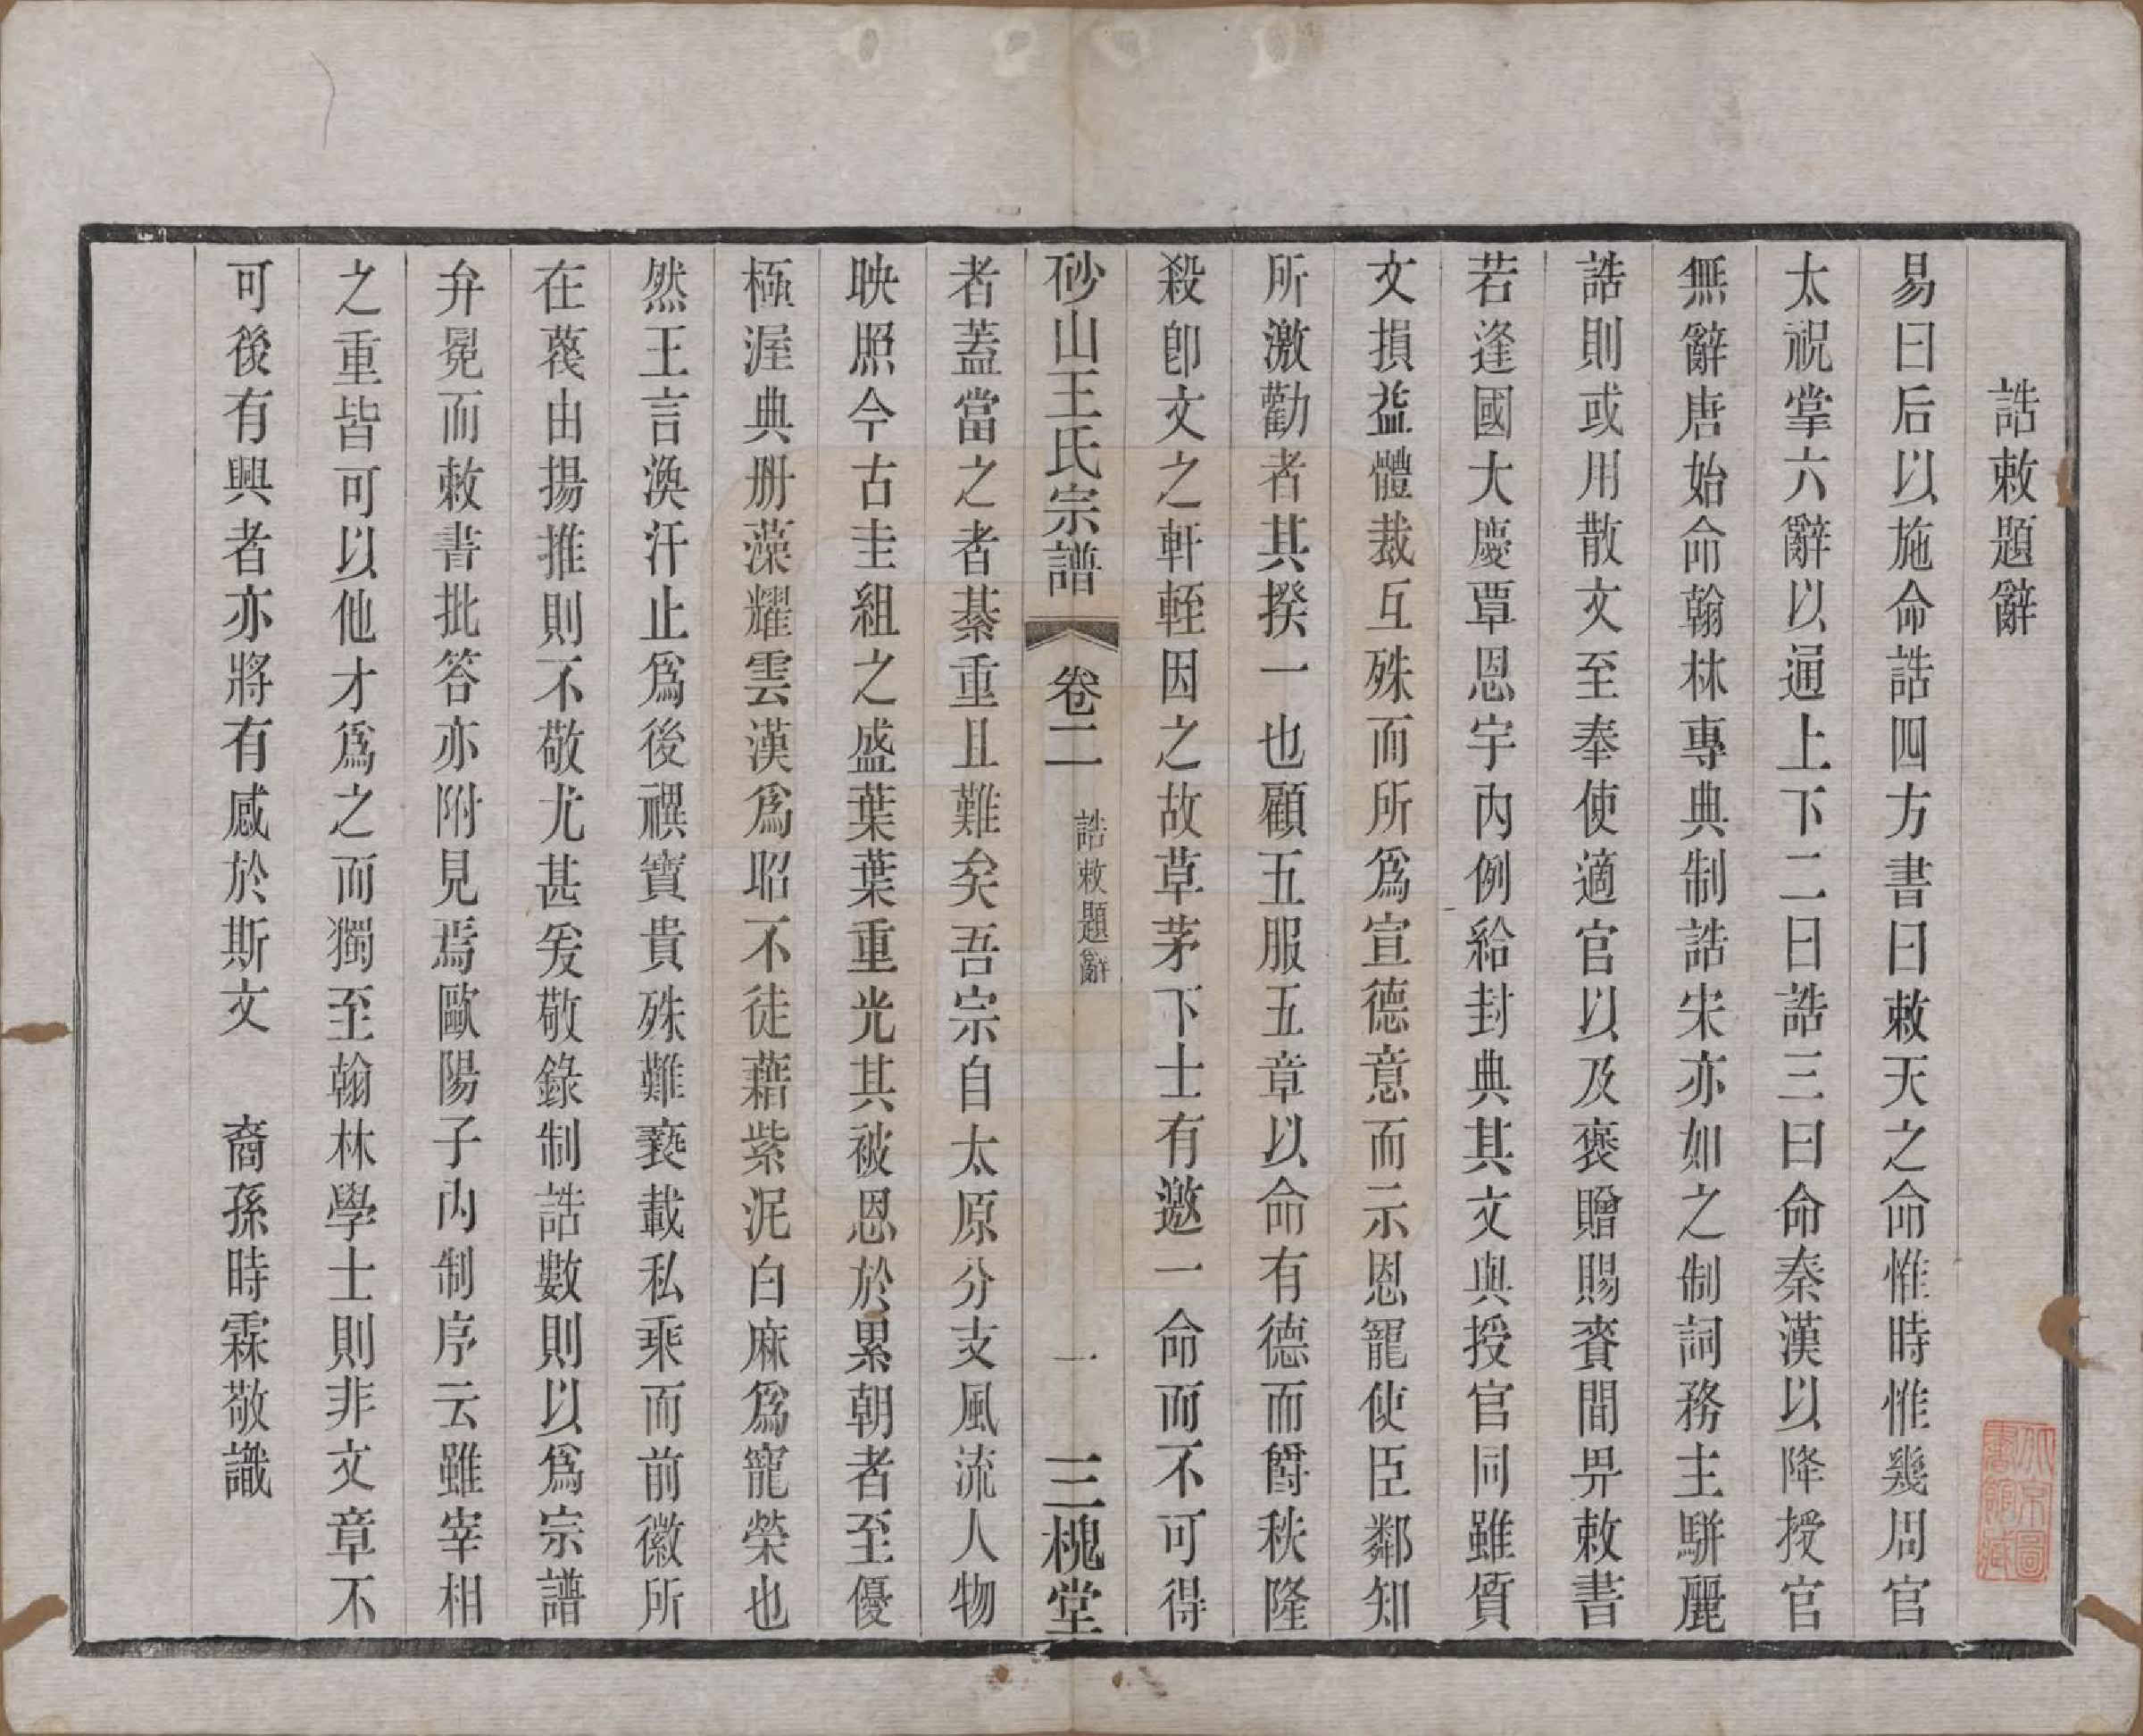 誥敕題辭
易曰后以施命誥四方書曰敕天之命惟時惟幾周官
太祝掌六辭以通上下二曰誥三曰命秦漢以降授官
無辭唐始命翰林專典制誥宋亦如之制詞務主駢麗
誥則或用散文至奉使適官以及褒贈賜賚間畀敕書
若逢國大慶覃恩宇內例給封典其文與授官同雖質
文損益體裁互殊而所爲宣德意而示恩寵使臣鄰知
所激勸者其揆一也顧五服五章以命有德而爵秩隆
殺卽文之軒輊因之故草茅下士有邀一命而不可得
砂山王氏宗譜 卷二 誥敕題辭 一 三槐堂
者蓋當之者綦重且難矣吾宗自太原分支風流人物
映照今古圭組之盛葉葉重光其被恩於累朝者至優
極渥典册藻耀雲漢爲昭不徒藉紫泥白麻爲寵榮也
然王言渙汗止爲後禩寶貴殊難褻載私乘而前徽所
在蔑由揚推則不敬尤甚爰敬錄制誥數則以爲宗譜
弁冕而敕書批答亦附見焉歐陽子內制序云雖宰相
之重皆可以他才爲之而獨至翰林學士則非文章不
可後有興者亦將有感於斯文 裔孫時霖敬識
北京圖書館藏